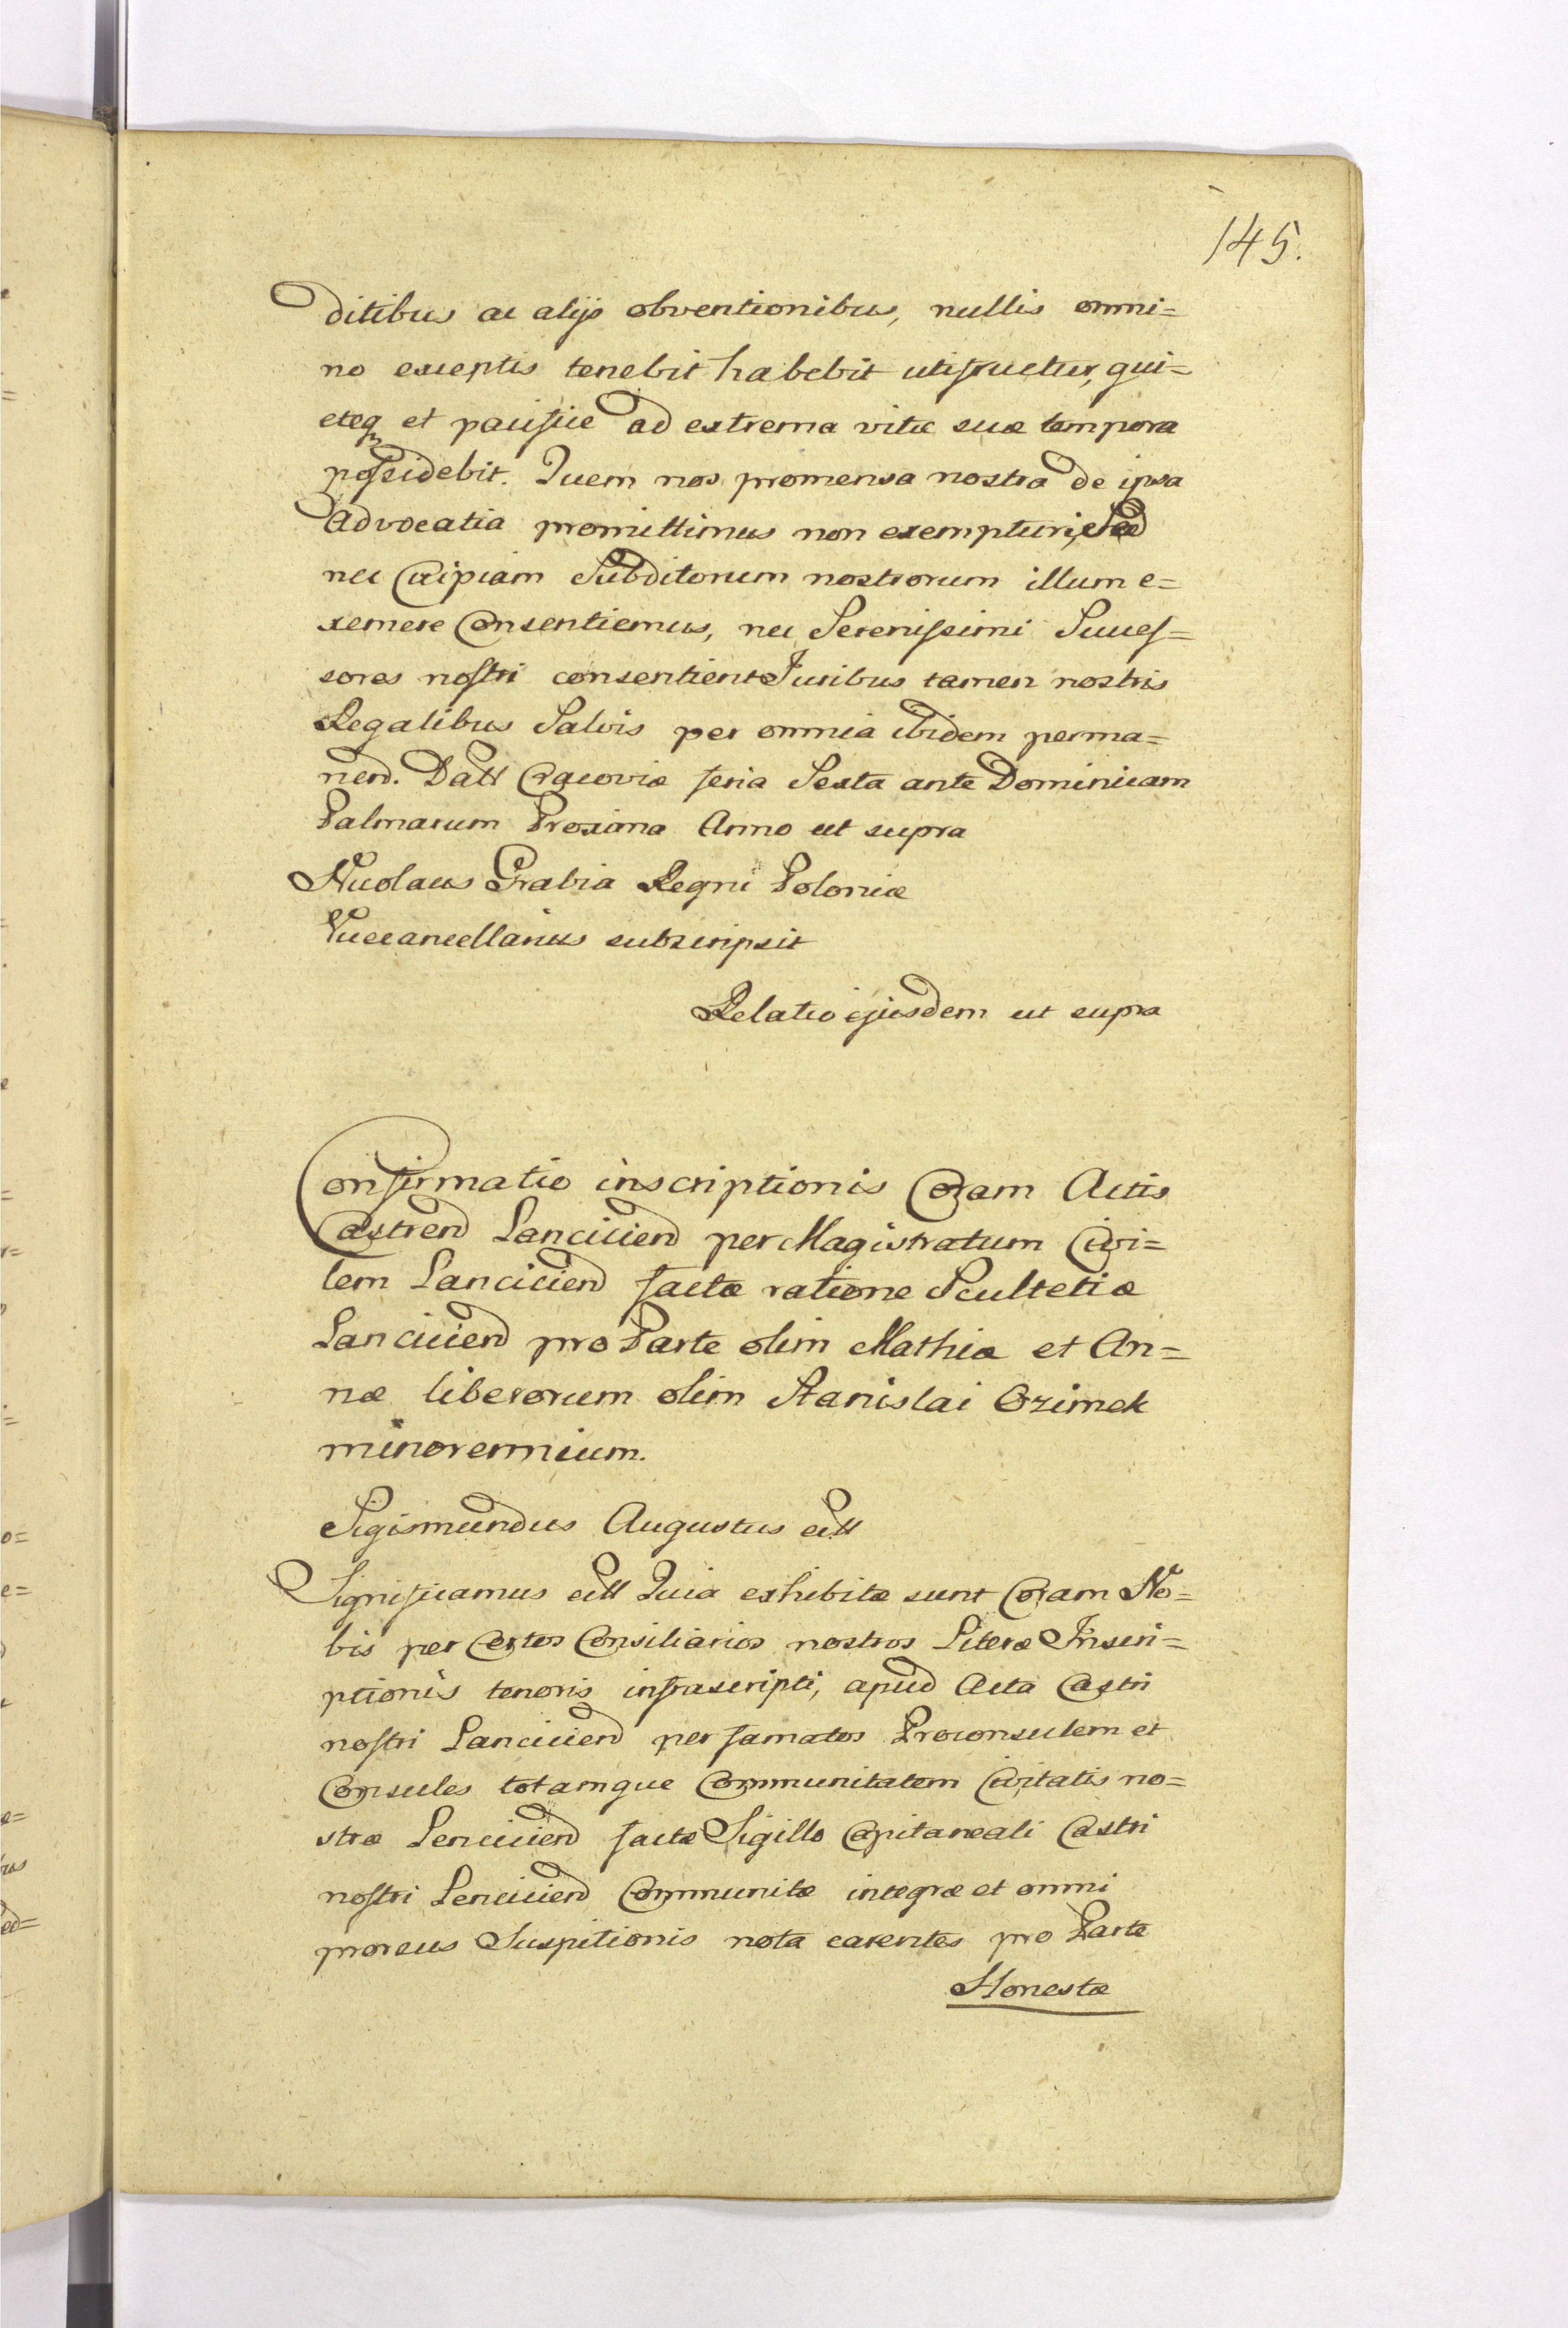 145.
ditibus ac alijs obventionibus, nullis omni=
no exceptis tenebit habebit utifruetur, qui=
eteq et pacifice ad extrema vitæ suæ tempora
possidebit. Quem nos promensa nostra de ipsa
advocatia promittimus non exempturi, Sed
nec Cuipiam Subditorum nostrorum illum e=
xemere Consentiemus, nec Serenissimi Succes=
sores nostri consentient Juribus tamen nostris
Regalibus Salvis per omnia ibidem perma=
nend. Datt Cracoviæ feria Sexta ante Dominicam
Palmarum Proxima Anno ut supra
Nicolaus Grabia Regni Poloniæ
Vicecancellarius subscripsit
Relatio ejusdem ut supra
Confirmatio inscriptionis Coram Actis
Castren Lancicien per Magistratum Civi=
lem Lancicien factæ ratione Scultetiæ
Lancicien pro Parte olim Mathiæ et An=
næ liberorum olim Stanislai Ozimek
minorennium.
Sigismundus Augustus ett
Significamus ett Quia exhibitæ sunt Coram No=
bis per Certos Consiliarios nostros Literæ Inscri=
ptionis tenoris infrascripti, apud Acta Castri
nostri Lancicien per famatos Proconsulem et
Consules totamque Communitatem Civitatis no=
stræ Lencicien factæ Sigillo Capitaneali Castri
nostri Lencicien Communitæ integræ et omni
prorsus Suspitionis nota carentes pro Parte
Honestæ